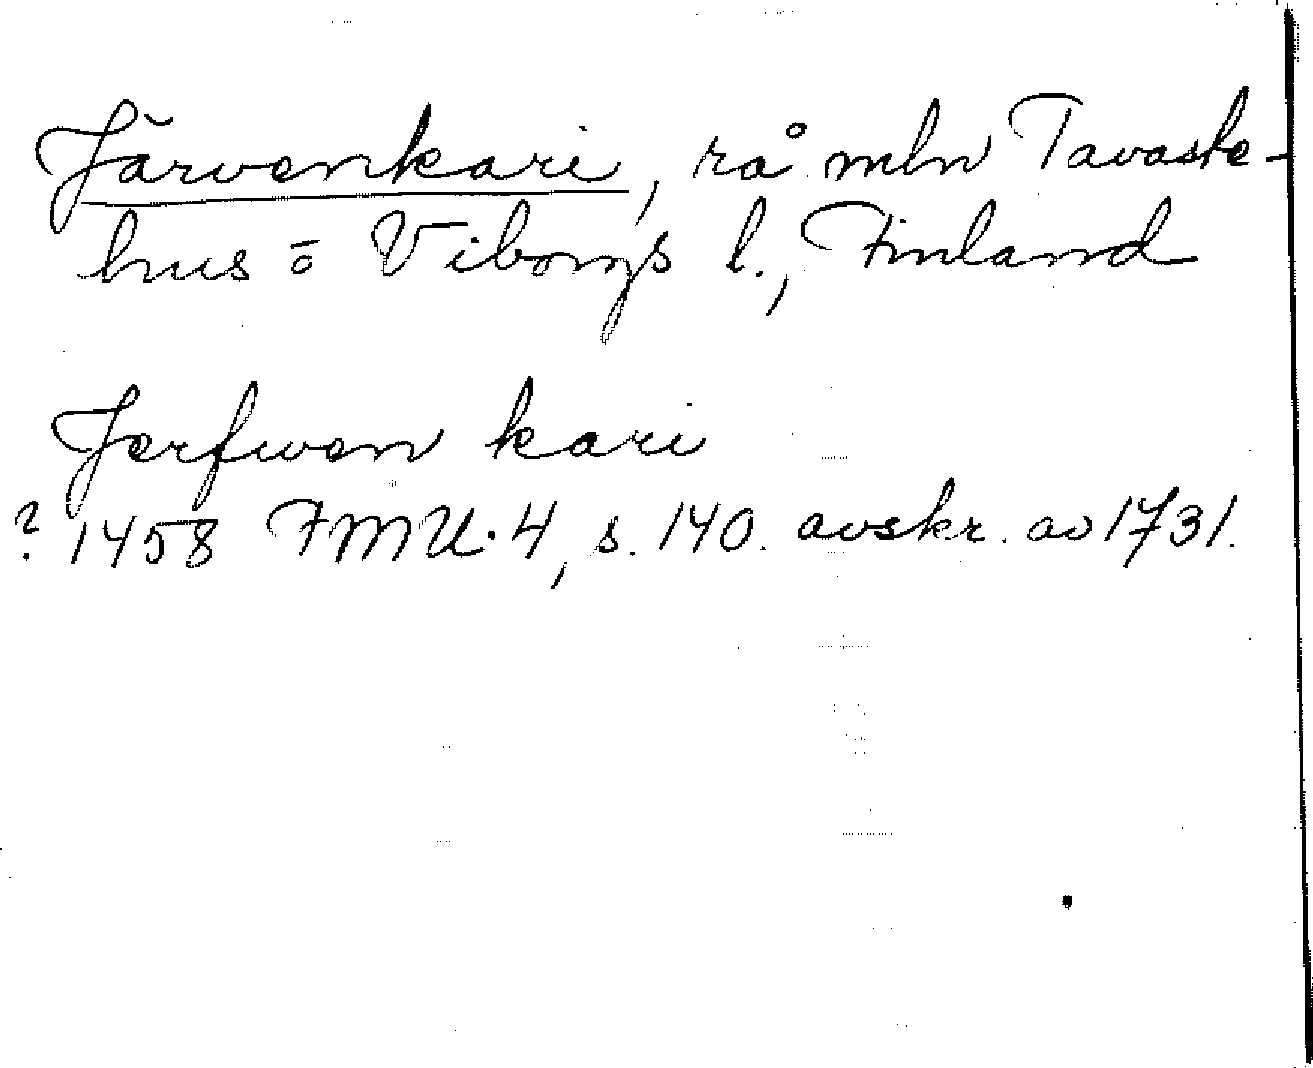 Järvenkari, rå mln Tavaste-
hus o Viborgs l., Finland
Jerfwen kari
? 1458 FMU. 4, s. 140. avskr. av 1731.